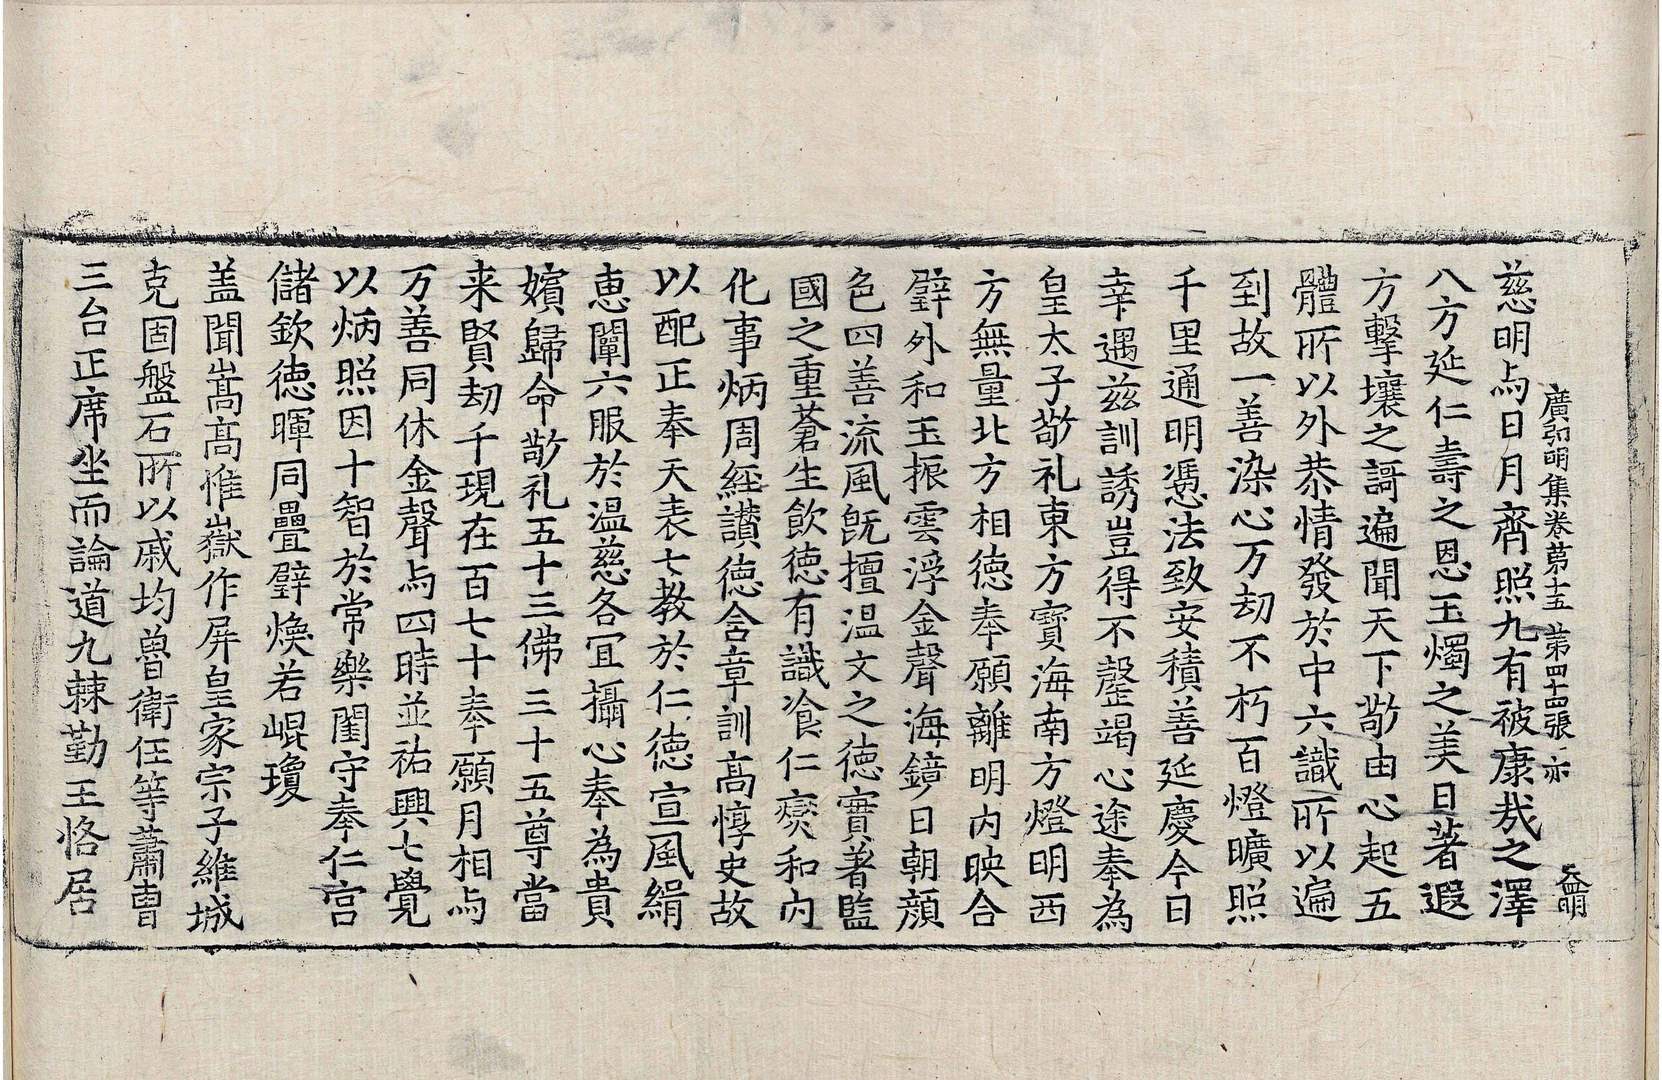 廣弘明集卷第十五 第四十四張 亦
孟明
慈明与日月齊照九有被康哉之澤
八方延仁壽之恩玉燭之美日著遐
方擊壤之謌遍聞天下敬由心起五
體所以外恭情發於中六識所以遍
到故一善染心万劫不朽百燈曠照
千里通明憑法致安積善延慶今日
幸遇兹訓誘豈得不罄竭心途奉為
皇太子敬礼東方寳海南方燈明西
方無量北方相徳奉願離明内映合
璧外和玉振雲浮金聲海鏡日朝顔
色四善流風旣擅温文之徳實著監
國之重蒼生飲徳有識飡仁爕和内
化事炳周經讃徳含章訓髙惇史故
以配正奉天表七教於仁徳宣風緝
恵闡六服於温慈各冝攝心奉為貴
嬪歸命敬礼五十三佛三十五尊當
来賢劫千現在百七十奉願月相与
万善同休金聲与四時並祐興七覺
以炳照因十智於常樂閨守奉仁宫
儲欽徳暉同疊璧煥若崐瓊
盖聞嵩髙惟嶽作屏皇家宗子維城
克固盤石所以戚均魯衛任等蕭曹
三台正席坐而論道九棘勤王恪居